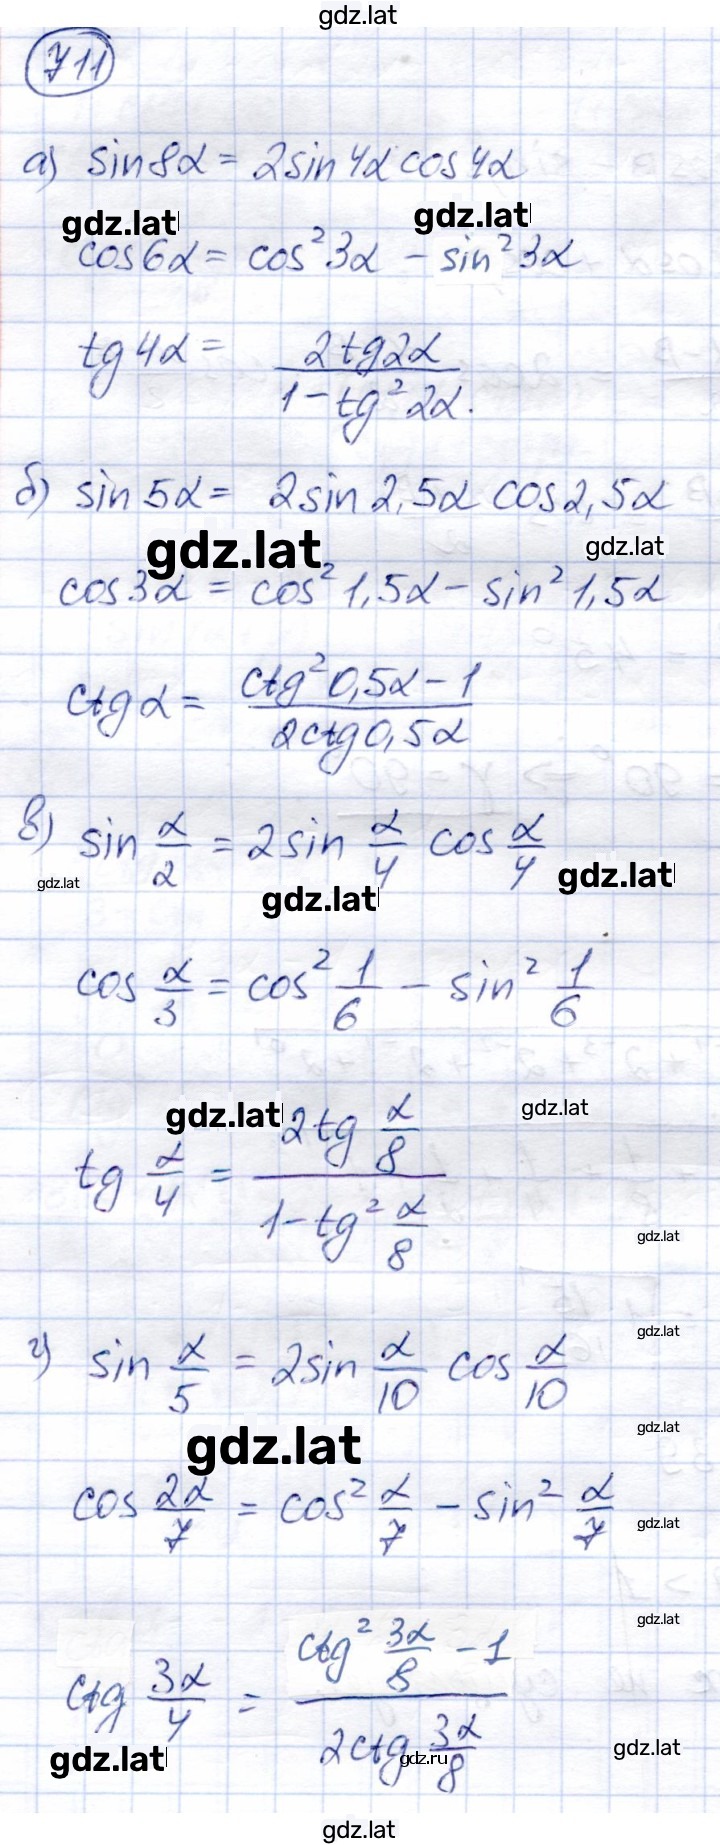 gdz.lat
711
а) sin8α = 2sin4α cos4α
gdz.lat
gdz.lat
cos6α = cos²3α − sin²3α
tg4α = 2tg2α / 1−tg²2α.
б) sin5α = 2sin2,5α cos2,5α
gdz.lat
gdz.lat
cos3α = cos²1,5α − sin²1,5α
ctgα = ctg²0,5α−1 / 2ctg0,5α
в) sin α/2 = 2sin α/4 cos α/4
gdz.lat
gdz.lat
gdz.lat
cos α/3 = cos² 1/6 − sin² 1/6
gdz.lat
gdz.lat
tg α/4 = 2tg α/8 / 1−tg² α/8
gdz.lat
gdz.lat
г) sin α/5 = 2sin α/10 cos α/10
gdz.lat
gdz.lat
cos 2α/7 = cos² α/7 − sin² α/7
gdz.lat
gdz.lat
ctg 3α/4 = ctg² 3α/8 − 1 / 2ctg 3α/8
gdz.lat
gdz.ru
gdz.lat
gdz.lat